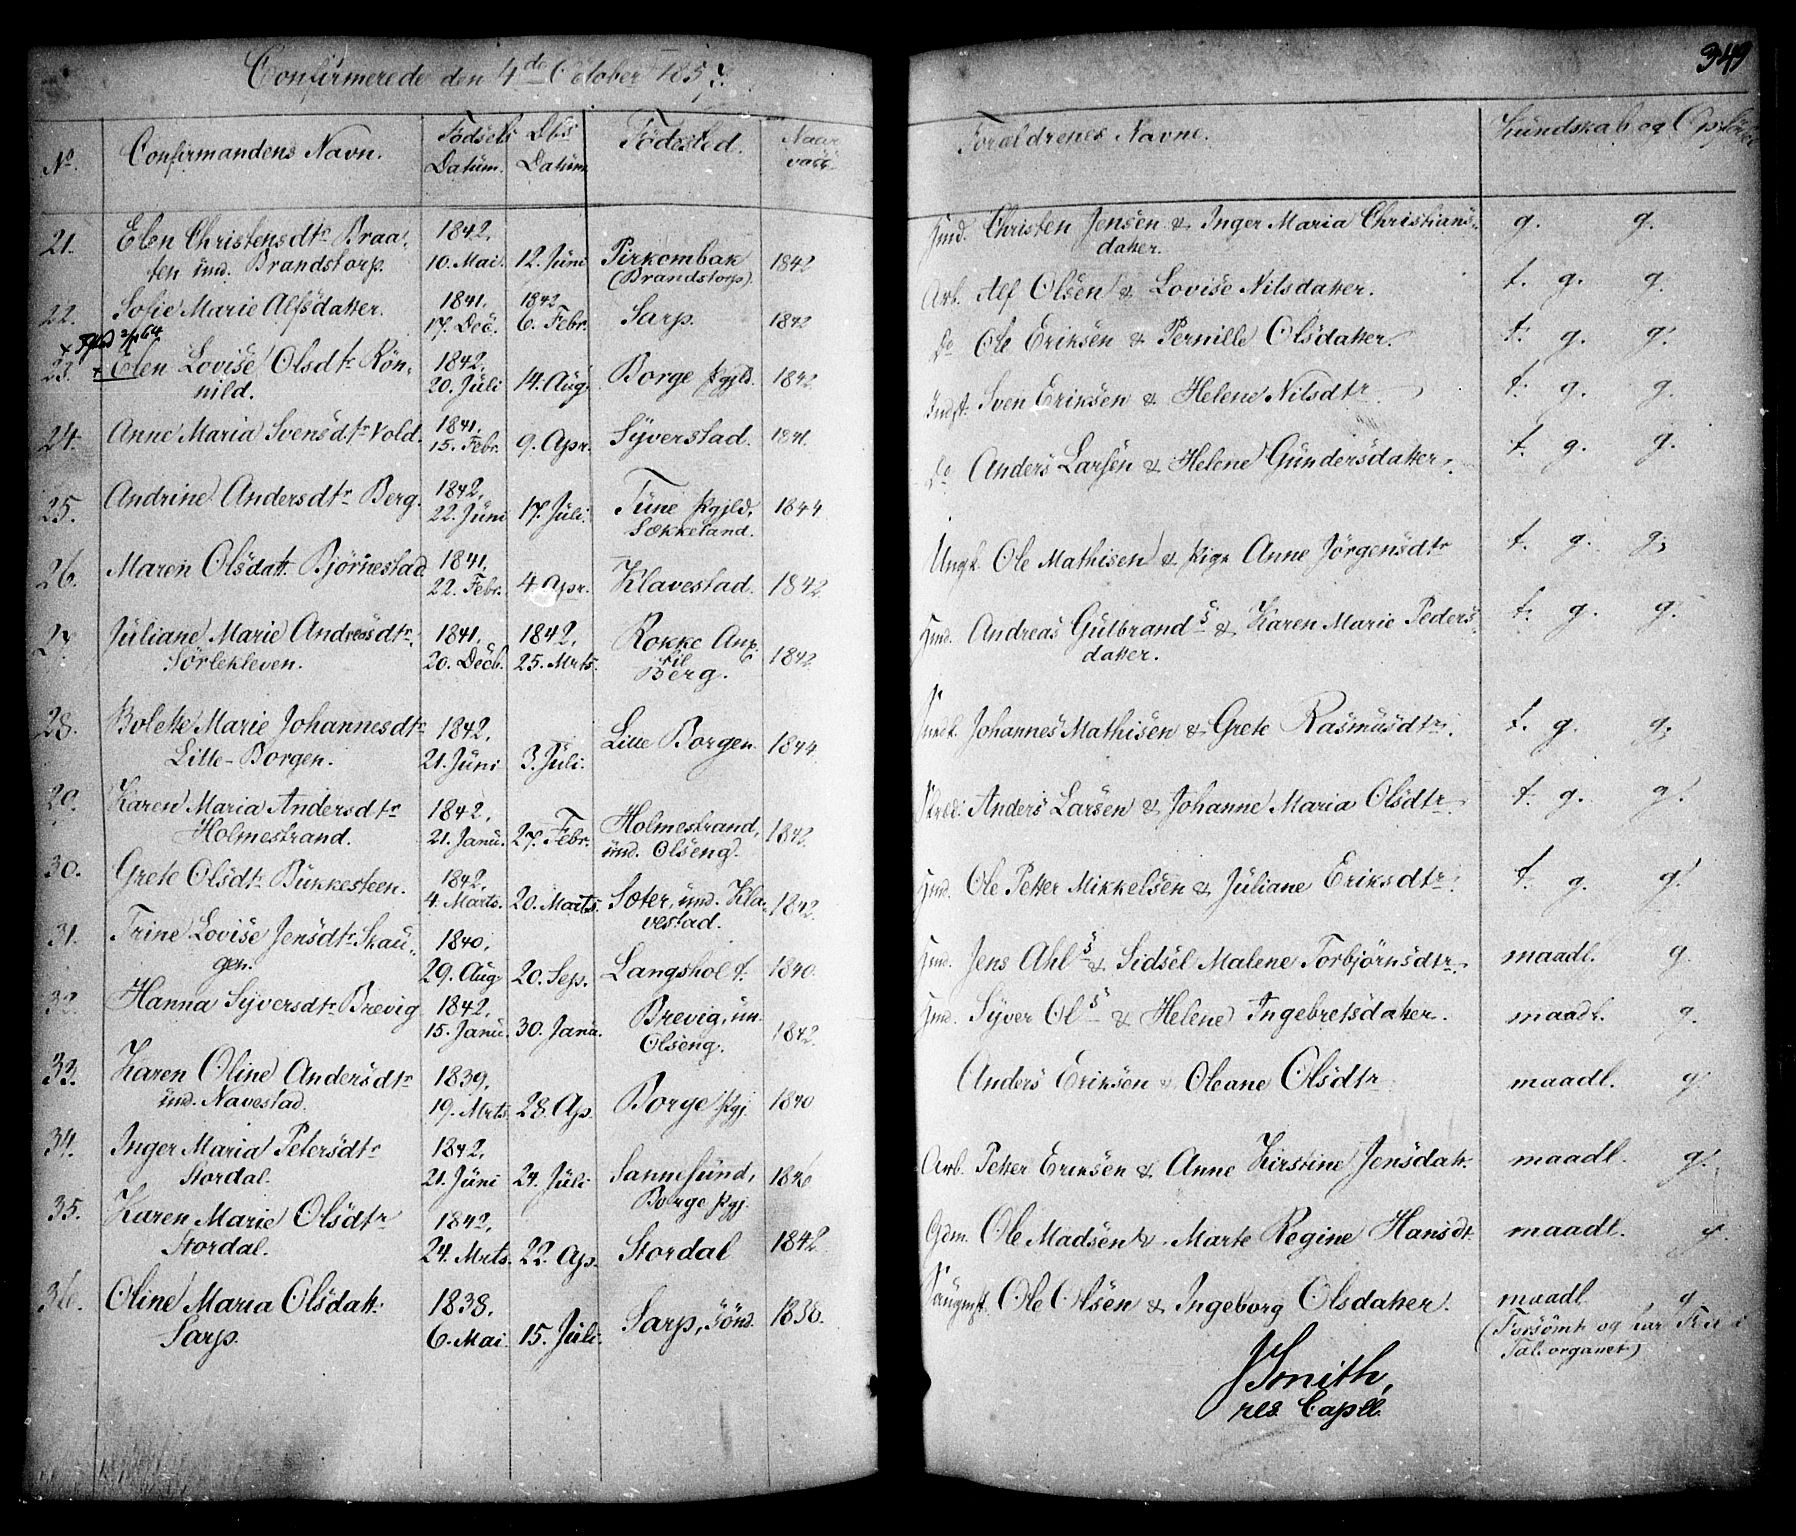 349
Confirmerede den 4de October 1857.
No. Confirmandens Navn. Födsels Datum. Dbs Datum. Födested. Naar vacc. Forældrenes Navne. Kundskab og
21. Elen Christensdtr Braa- 1842, Hmd. Christen Jensen & Inger Maria Christians- g. g.
ten und. Brandstorp. 10. Mai. 12. Juni Pirkombak 1842 datter.
(Brandstorp).
22. Sofie Marie Alfsdatter. 1841, 1842 Arb. Alf Olsen & Lovise Nilsdatter. t. g. g.
17. Dec. 6. Febr. Sarp. 1842
23. Elen Lovise Olsdtr Rön- 1842, Do Ole Eriksen & Pernille Olsdatter. t. g. g.
nild. 20. Juli 14. Aug. Borge Pgjld. 1842.
24. Anne Maria Svensdtr Vold. 1841, Indst. Sven Eriksen & Helene Nilsdtr t. g. g.
15. Febr. 9. Apr. Syverstad. 1841.
25. Andrine Andersdtr Berg. 1842, Do Anders Larsen & Helene Gundersdatter. t. g. g.
22. Juni 17. Juli. Tune Pgjld. 1844
Sækkeland.
26. Maren Olsdatt. Bjørnestad. 1841, Ungk. Ole Mathisen & Pige Anne Jörgensdtr t. g. g.
22. Febr. 4. Apr. Klavestad. 1842
27 Juliane Marie Andreasdtr. 1841, 1842, Rokke Anx. Hmd. Andreas Gulbrands & Karen Marie Peders- t. g. g.
Sörlekleven. 20. Decb. 25. Mrts. til Berg. 1842. datter.
28. Bolette Marie Johannesdtr 1842, Johannes Mathisen & Grete Rasmusdtr. t. g. g.
Lille-Borgen. 21. Juni 3. Juli. Lille Borgen. 1844.
29. Karen Maria Andersdtr 1842, Anders Larsen & Johanne Maria Olsdtr. t. g. g.
Holmestrand. 21. Janu. 27. Febr. Holmestrand, und. Olseng. 1842.
30. Grete Olsdtr Bukkesteen. 1842, Hmd. Ole Petter Mikkelsen & Juliane Eriksdtr. t. g. g.
4. Marts. 20. Marts. Sæter, und. Kla- 1842.
vestad.
31. Trine Lovise Jensdtr Skau- 1840, Hmd. Jens Ahls & Sidsel Malene Torbjörnsdtr. maadl. g.
gen. 29. Aug 20. Sep. Langsholt. 1840.
32. Hanna Syversdtr Brevig 1842, Hmd. Syver Ols & Helene Ingebretsdatter. maadl. g.
15. Janu. 30. Janu. Brevig, un. 1842.
Olseng.
33. Karen Oline Andersdtr 1839, Anders Eriksen & Oleane Olsdtr maadl. g.
und. Navestad. 19. Mrts. 28. Ap. Borge Pgj. 1840
34. Inger Maria Petersdtr 1842, Arb. Petter Eriksen & Anne Kirstine Jensdatt. maadl. g.
Stordal. 21. Juni 24. Juli Sannesund, 1846
Borge Pgj.
35. Karen Marie Olsdtr 1842, Gdm. Ole Madsen & Marte Regine Hansdt. maadl. g.
Stordal. 24. Mrts. 22. Ap. Stordal 1842
36. Oline Maria Olsdatt. 1838, Ole Olsen & Ingeborg Olsdatter. maadl g
Sarp. 6. Mai. 15. Juli. Sarp, sönd. 1838. (Forsömt og har Feil i
Talorganet)
J Smith,
res. Capell.